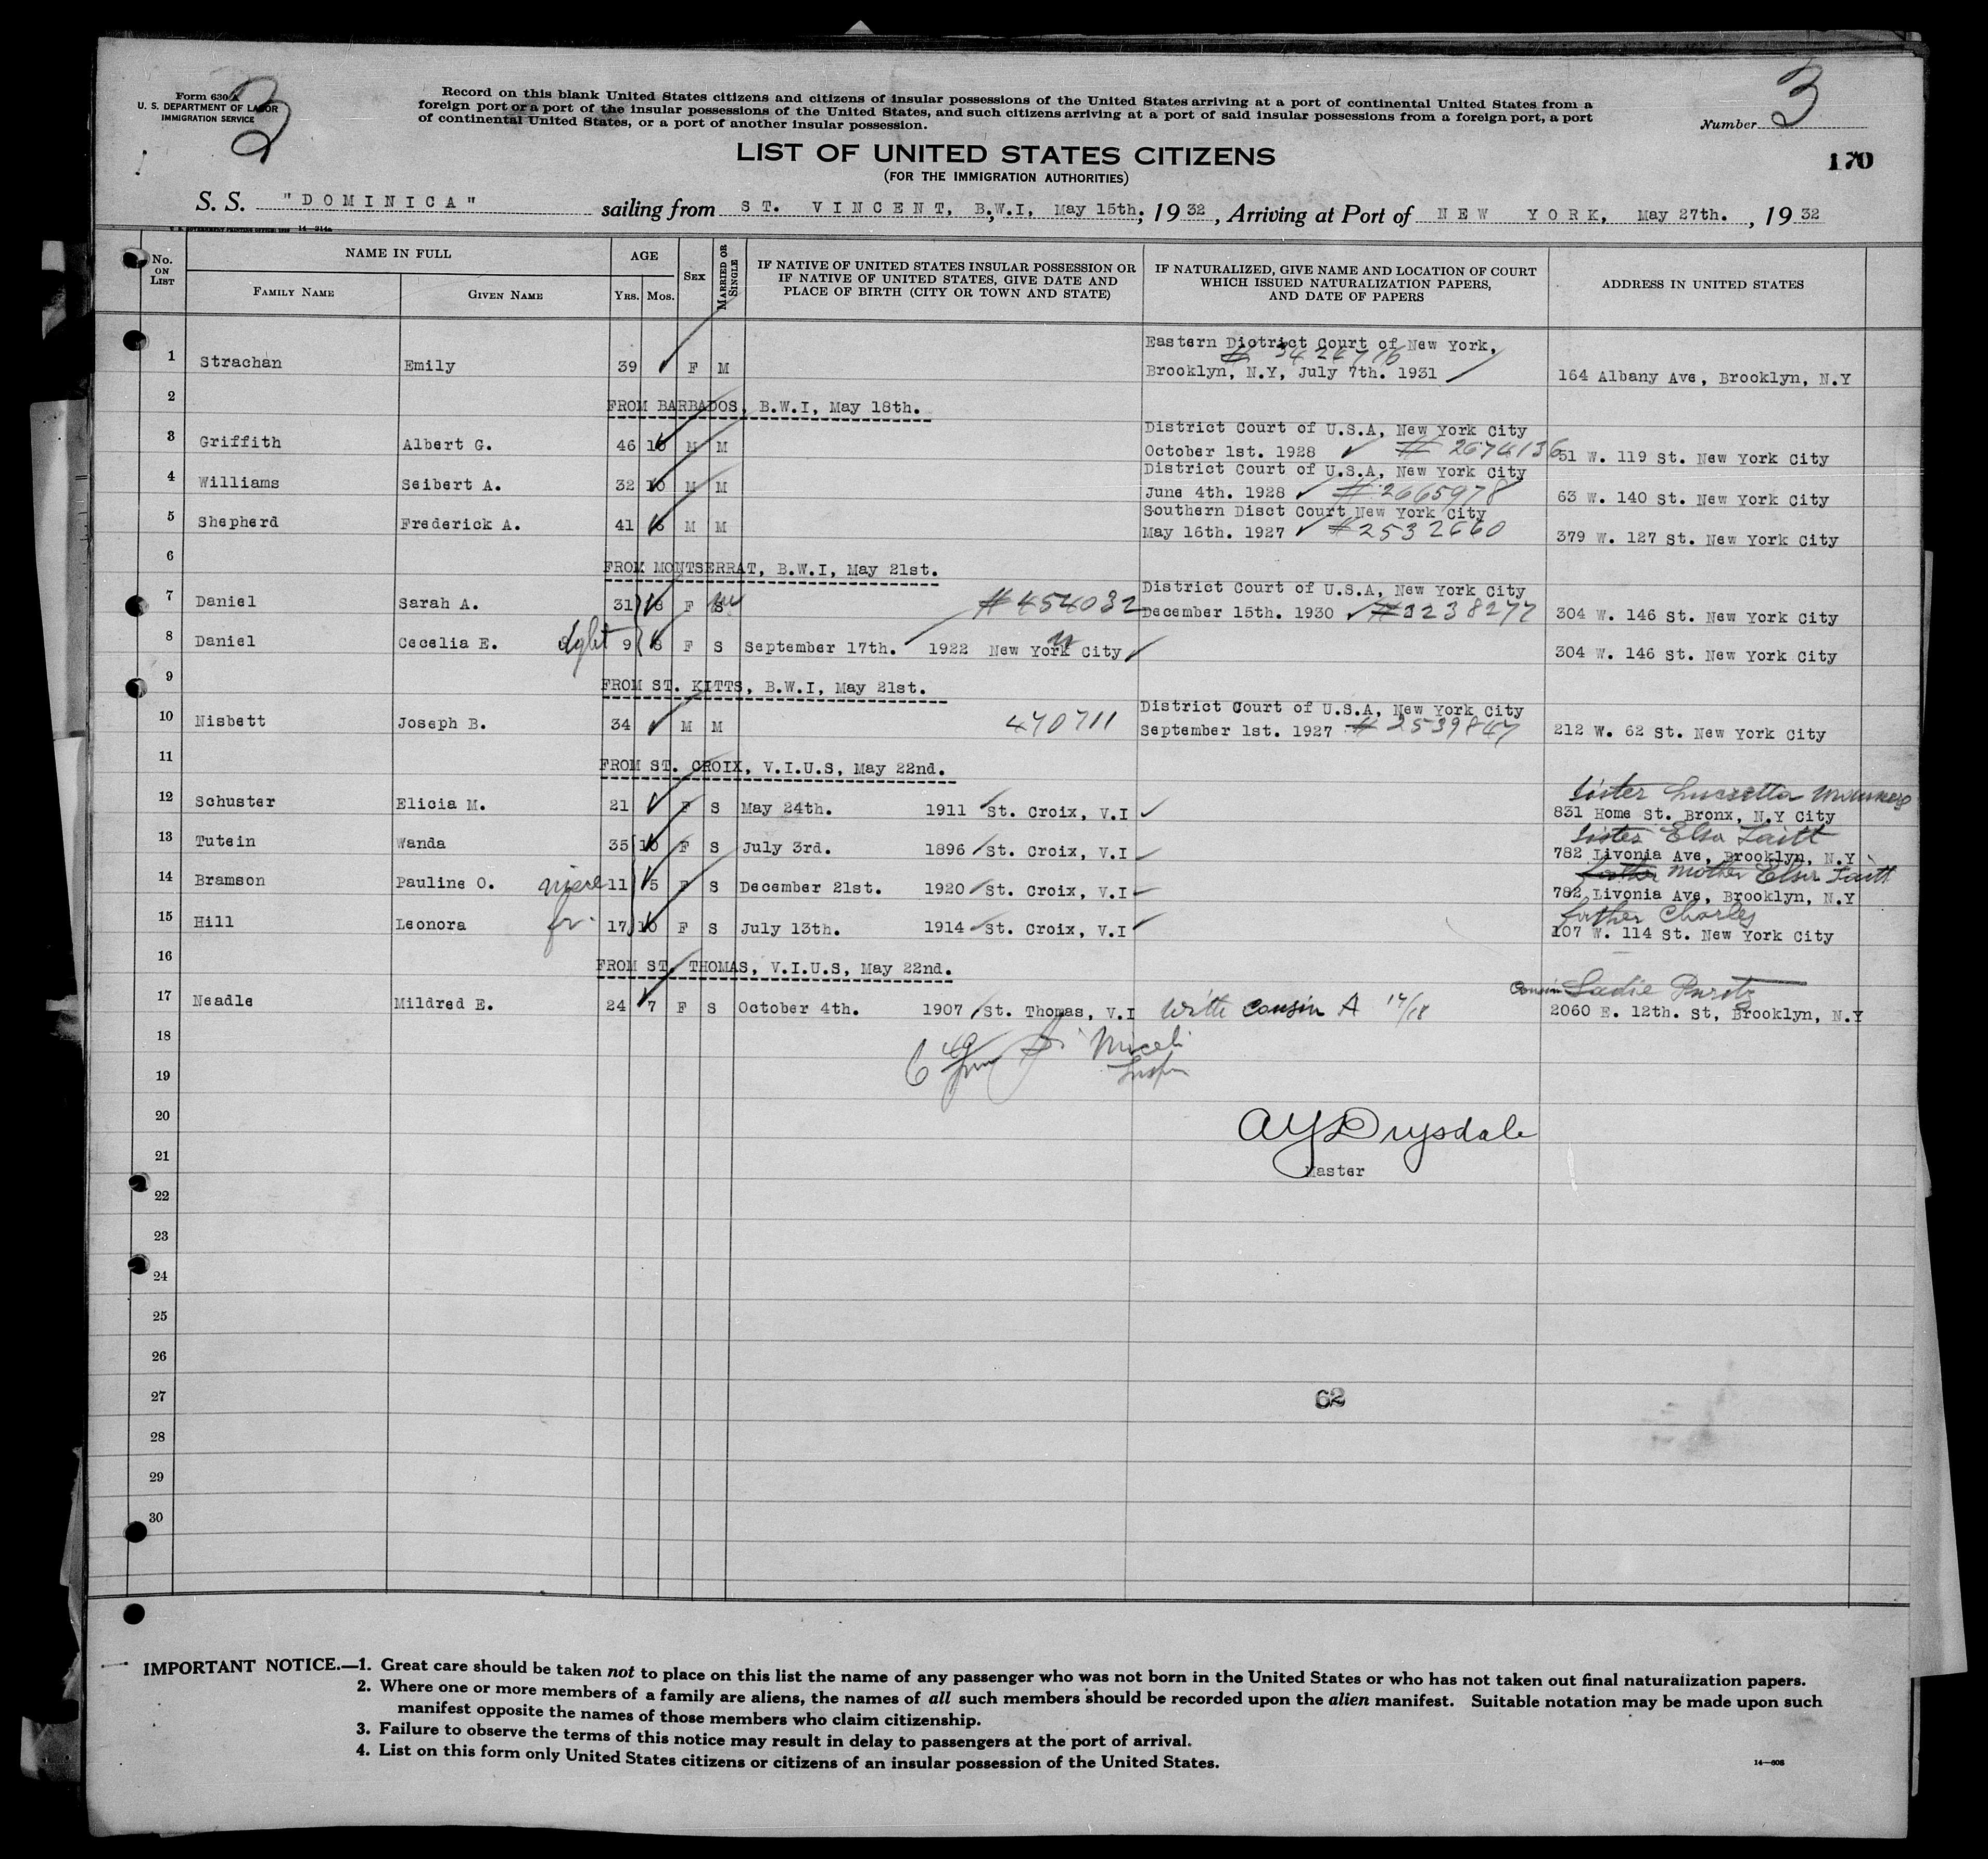 Form 630 A
U. S. DEPARTMENT OF LABOR
IMMIGRATION SERVICE
3
Record on this blank United States citizens and citizens of insular possessions of the United States arriving at a port of continental United States from a
foreign port or a port of the insular possessions of the United States, and such citizens arriving at a port of said insular possessions from a foreign port, a port
of continental United States, or a port of another insular possession.
Number 3
170
LIST OF UNITED STATES CITIZENS
(FOR THE IMMIGRATION AUTHORITIES)
S. S. "DOMINICA" sailing from ST. VINCENT, B.W.I, May 15th; 1932, Arriving at Port of NEW YORK, May 27th., 1932
No. ON LIST
NAME IN FULL
FAMILY NAME
GIVEN NAME
AGE
YRS.
MOS.
SEX
MARRIED OR SINGLE
IF NATIVE OF UNITED STATES INSULAR POSSESSION OR
IF NATIVE OF UNITED STATES, GIVE DATE AND
PLACE OF BIRTH (CITY OR TOWN AND STATE)
IF NATURALIZED, GIVE NAME AND LOCATION OF COURT
WHICH ISSUED NATURALIZATION PAPERS,
AND DATE OF PAPERS
ADDRESS IN UNITED STATES
Eastern Dictrict Court of New York,
# 3424716
1 Strachan Emily 39 F M Brooklyn, N.Y, July 7th. 1931 164 Albany Ave, Brooklyn, N.Y
2 FROM BARBADOS, B.W.I, May 18th.
District Court of U.S.A, New York City
3 Griffith Albert G. 46 10 M M October 1st. 1928 # 2674136 51 W. 119 St. New York City
District Court of U.S.A, New York City
4 Williams Seibert A. 32 10 M M June 4th. 1928 #2665978 63 W. 140 St. New York City
Southern Disct Court New York City
5 Shepherd Frederick A. 41 6 M M May 16th. 1927 #2532660 379 W. 127 St. New York City
6 FROM MONTSERRAT, B.W.I, May 21st.
District Court of U.S.A, New York City
7 Daniel Sarah A. 31 6 F S m #454032 December 15th. 1930 #3238277 304 W. 146 St. New York City
8 Daniel Cecelia E. 9 8 F S September 17th. 1922 New York City 304 W. 146 St. New York City
9 FROM ST. KITTS, B.W.I, May 21st.
District Court of U.S.A, New York City
10 Nisbett Joseph B. 34 M M 470711 September 1st. 1927 # 2539847 212 W. 62 St. New York City
11 FROM ST. CROIX, V.I.U.S, May 22nd.
sister
12 Schuster Elicia M. 21 F S May 24th. 1911 St. Croix, V.I 831 Home St. Bronx, N.Y City
sister Elsa Taitt
13 Tutein Wanda 35 10 F S July 3rd. 1896 St. Croix, V.I 782 Livonia Ave, Brooklyn, N.Y
father mother Elsa Taitt
14 Bramson Pauline O. niece 11 5 F S December 21st. 1920 St. Croix, V.I 782 Livonia Ave, Brooklyn, N.Y
father Charles
15 Hill Leonora fr. 17 10 F S July 13th. 1914 St. Croix, V.I 107 W. 114 St. New York City
16 FROM ST. THOMAS, V.I.U.S, May 22nd.
Cousin Sadie
17 Neadle Mildred E. 24 7 F S October 4th. 1907 St. Thomas, V.I With cousin A 17/18 2060 E. 12th. St, Brooklyn, N.Y
18
19
20
AY Drysdale
21
Master
22
23
24
25
26
27
62
28
29
30
IMPORTANT NOTICE.—1. Great care should be taken not to place on this list the name of any passenger who was not born in the United States or who has not taken out final naturalization papers.
2. Where one or more members of a family are aliens, the names of all such members should be recorded upon the alien manifest. Suitable notation may be made upon such
manifest opposite the names of those members who claim citizenship.
3. Failure to observe the terms of this notice may result in delay to passengers at the port of arrival.
4. List on this form only United States citizens or citizens of an insular possession of the United States.
14—608